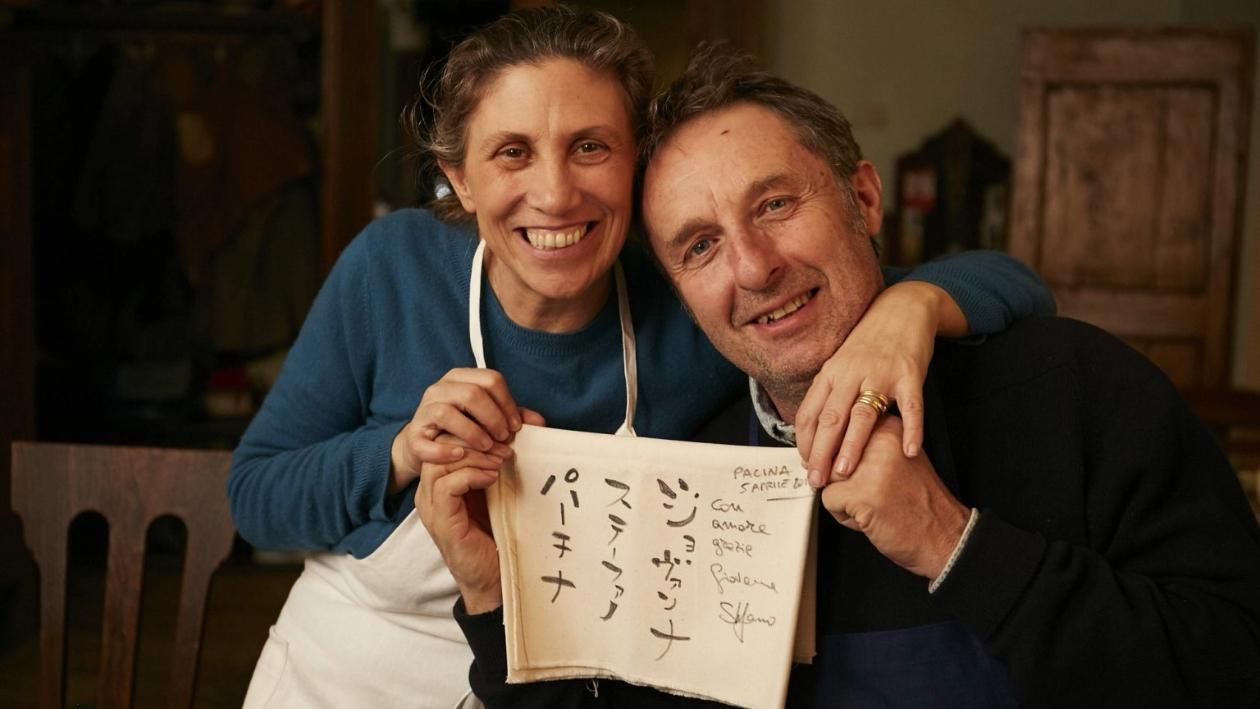 PACINA
5 APRILE 201
con
amore
grazie
Giovanna
Stefano
ジョヴァンナ
ステーファノ
パーチナ